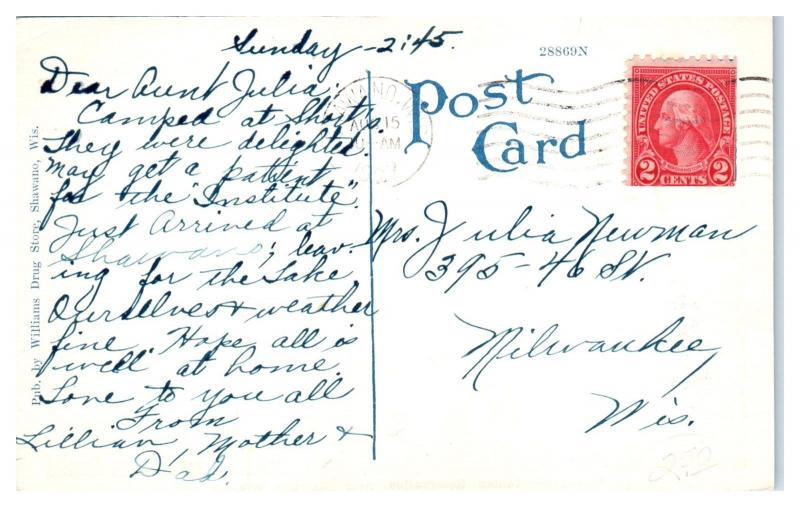 Sunday - 2:45.
28869N
Dear Aunt Julia:
Camped at Short's.
They were delighted.
May get a patient
for the "Institute".
Just arrived at
Shawano; leav-
ing for the Lake.
Ourselves & weather
fine. Hope all is
well at home.
Love to you all
From
Lillian, Mother &
Dad.
Pub. by Williams Drug Store, Shawano, Wis.
Post
Card
AUG 15
AM
UNITED STATES POSTAGE
2 CENTS 2
Mrs. Julia Newman
395-46 St.
Milwaukee,
Wis.
250